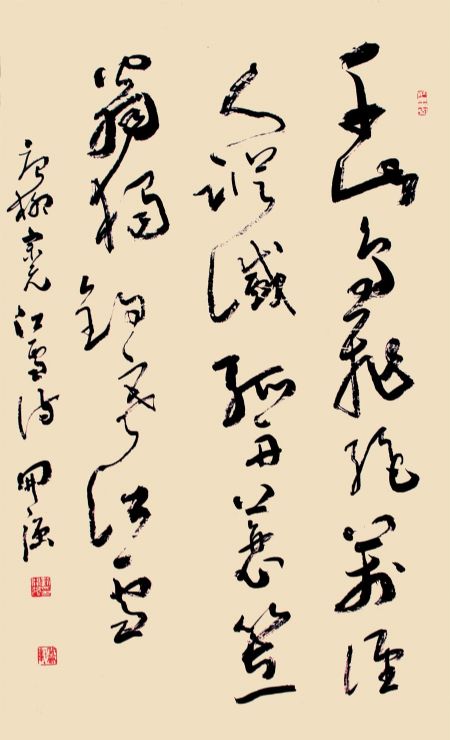 千山鳥飛絕萬徑
人蹤滅孤舟蓑笠
翁獨釣寒江雪
唐柳宗元江雪詩 開